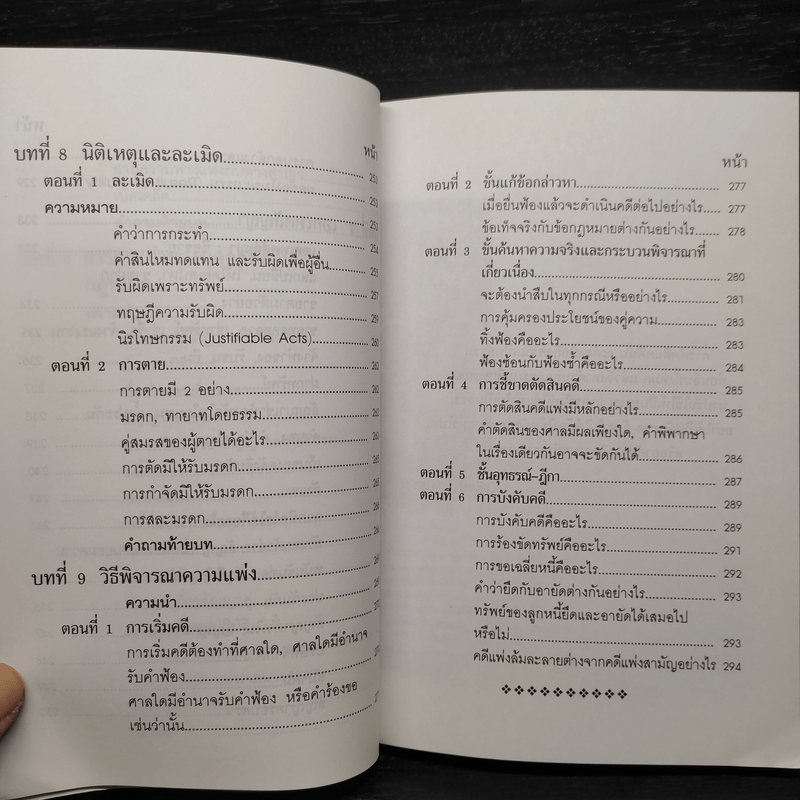 หน้า
บทที่ 8 นิติเหตุและละเมิด
ตอนที่ 1 ละเมิด
ความหมาย
คำว่าการกระทำ
ค่าสินไหมทดแทน และรับผิดเพื่อผู้อื่น
รับผิดเพราะทรัพย์
ทฤษฎีความรับผิด
นิรโทษกรรม (Justifiable Acts)
ตอนที่ 2 การตาย
การตายมี 2 อย่าง
มรดก, ทายาทโดยธรรม
คู่สมรสของผู้ตายได้อะไร
การตัดมิให้รับมรดก
การกำจัดมิให้รับมรดก
การสละมรดก
คำถามท้ายบท
บทที่ 9 วิธีพิจารณาความแพ่ง
ความนำ
ตอนที่ 1 การเริ่มคดี
การเริ่มคดีต้องทำที่ศาลใด, ศาลใดมีอำนาจ
รับคำฟ้อง
ศาลใดมีอำนาจรับคำฟ้อง หรือคำร้องขอ
เช่นว่านั้น
หน้า
ตอนที่ 2 ขั้นแก้ข้อกล่าวหา 277
เมื่อยื่นฟ้องแล้วจะดำเนินคดีต่อไปอย่างไร 277
ข้อเท็จจริงกับข้อกฎหมายต่างกันอย่างไร 278
ตอนที่ 3 ขั้นค้นหาความจริงและกระบวนพิจารณาที่
เกี่ยวเนื่อง 280
จะต้องนำสืบในทุกกรณีหรืออย่างไร 281
การคุ้มครองประโยชน์ของคู่ความ 283
ทิ้งฟ้องคืออะไร 283
ฟ้องซ้อนกับฟ้องซ้ำคืออะไร 284
ตอนที่ 4 การชี้ขาดตัดสินคดี 285
การตัดสินคดีแพ่งมีหลักอย่างไร 285
คำตัดสินของศาลมีผลเพียงใด, คำพิพากษา
ในเรื่องเดียวกันอาจจะขัดกันได้ 286
ตอนที่ 5 ชั้นอุทธรณ์-ฎีกา 287
ตอนที่ 6 การบังคับคดี 289
การบังคับคดีคืออะไร 289
การร้องขัดทรัพย์คืออะไร 291
การขอเฉลี่ยหนี้คืออะไร 292
คำว่ายึดกับอายัดต่างกันอย่างไร 293
ทรัพย์ของลูกหนี้ยึดและอายัดได้เสมอไป
หรือไม่ 293
คดีแพ่งล้มละลายต่างจากคดีแพ่งสามัญอย่างไร 294